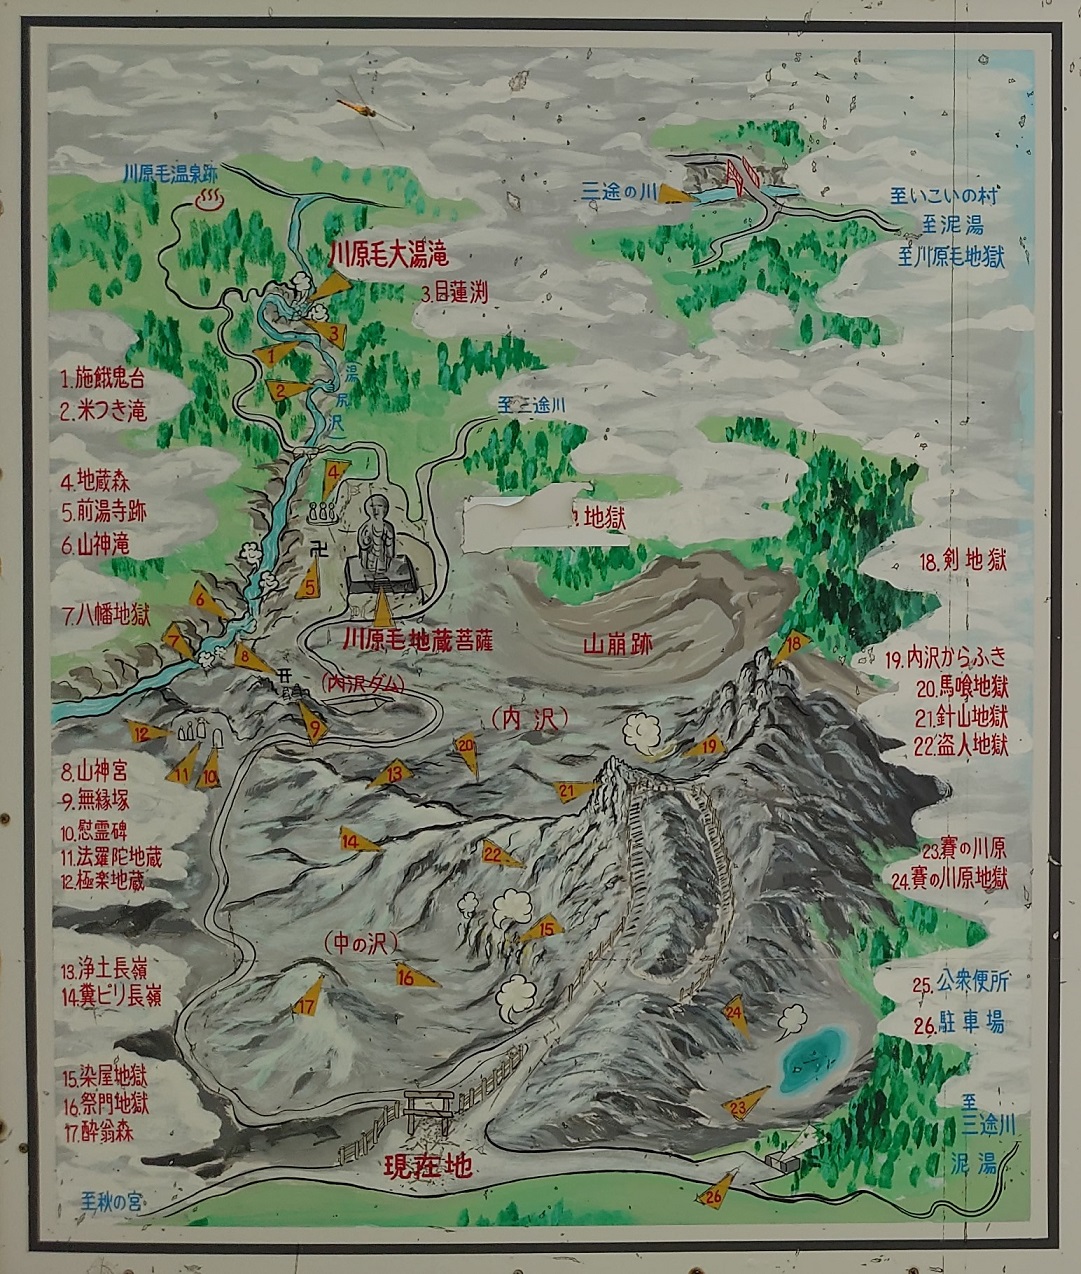 川原毛温泉跡
三途の川
至いこいの村
至泥湯
至川原毛地獄
川原毛大湯滝
3.目蓮渕
3
1
2
湯尻沢
1.施餓鬼台
2.米つき滝
至三途川
4.地蔵森
5.前湯寺跡
6.山神滝
7.八幡地獄
4
卍
5
6
7
8
地獄
川原毛地蔵菩薩
山崩跡
18
18.剣地獄
19.内沢からふき
20.馬喰地獄
21.針山地獄
22.盗人地獄
(内沢ダム)
(内沢)
9
12
11
10
20
19
13
21
14
22
8.山神宮
9.無縁塚
10.慰霊碑
11.法羅陀地蔵
12.極楽地蔵
23.賽の川原
24.賽の川原地獄
(中の沢)
15
16
17
13.浄土長嶺
14.糞ビリ長嶺
25.公衆便所
26.駐車場
24
23
15.染屋地獄
16.祭門地獄
17.酔翁森
至
三途川
泥湯
現在地
26
至秋の宮